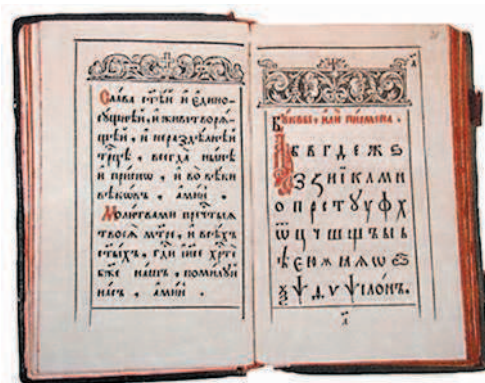 Сла́ва ст҃ѣ́й и҆ є҆дино-
су́щнѣй, и҆ животворѧ́-
щѣй, и҆ нераздѣ́лнѣй
тр҃цѣ, всегда̀ ны́нѣ
и҆ при́снѡ, и҆ во вѣ́ки
вѣкѡ́въ, а҆ми́нь.
Моли́твами преч҃тыѧ
твоеѧ̀ мт҃ре, и҆ всѣ́хъ
ст҃ы́хъ, гд҃и і҆и҃се хр҃те
бж҃е нашъ, поми́луй
на́съ, а҆ми́нь.
Бу́квы, и҆лѝ пи́смена.
А б в г д е ж ѕ
З ꙁ и ї к л м н
о п р с т ѹ у ф х
ѿ ц ч ш щ ъ ы ь
ѣ є ю ѫ ꙗ ѧ ѡ
ѯ ѱ ѵ